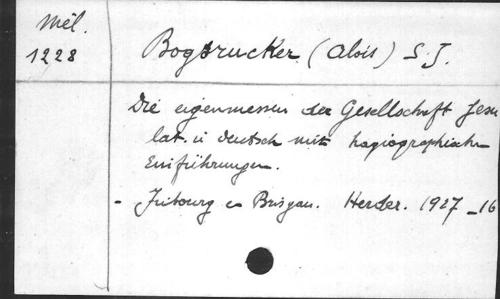 Mél.
1228
Bogsrucker (Alois) S.J.
Die eigenmessen der Gesellschaft Jesu
lat. u deutsch mit hagiographischen
Einführungen.
- Fribourg en Brisgau. Herder. 1927 _16